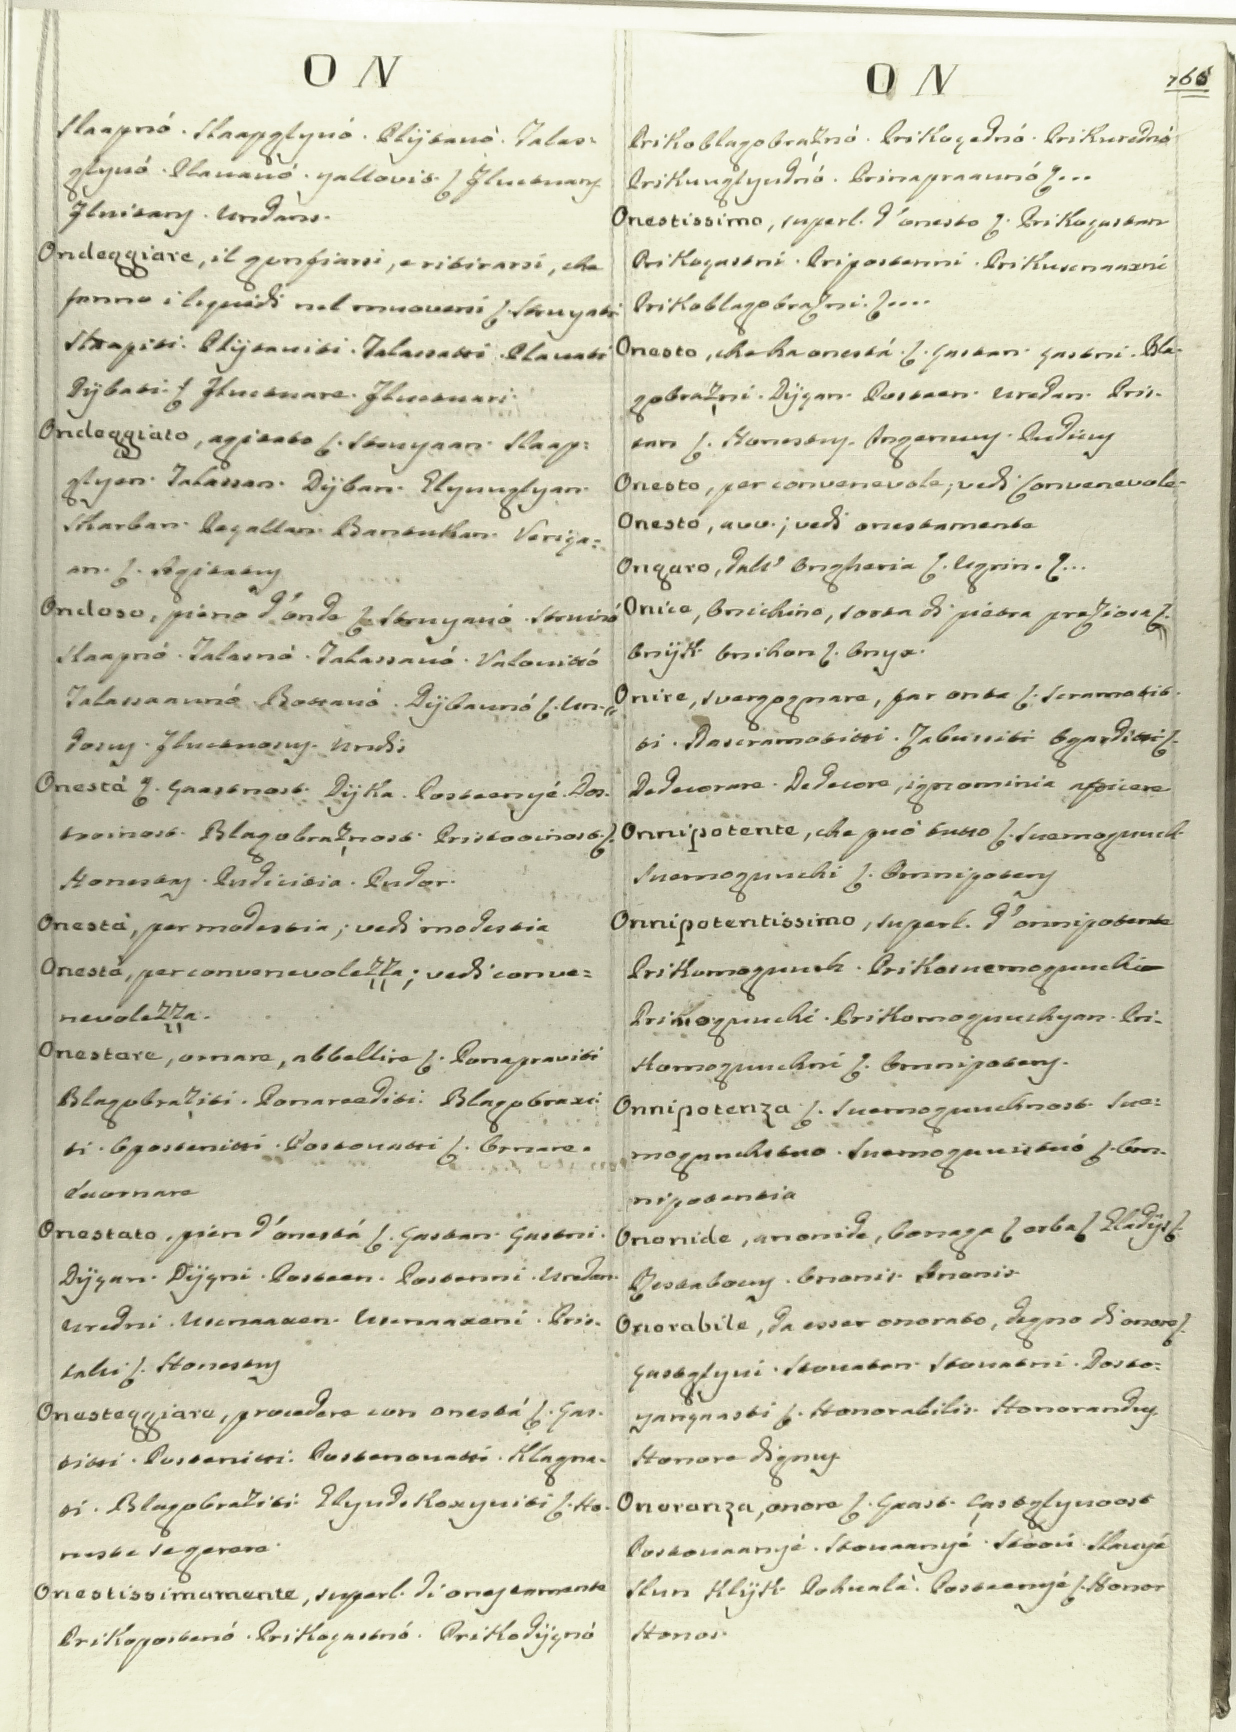 O N
Slaapnó. Slaapglyuó. Plÿtauó. Talas-
glyuó. Plauauó. yallovis. ζ. Fluctuans
Fluitans. Undans.
Ondeggiare, il gonfiarsi, e ritirarsi, che
fanno i liquidi nel muoversi ζ. Struyati
Slaapiti. Plÿtauiti. Talassatti. Plauati
Dÿbati. ζ. Fluctuare. Fluctuari.
Ondeggiato, agitato ζ. Struyaan. Slaap-
glyen. Talassan. Dÿban. Glyuuglyan.
Skarban. Pegallan. Bantukan. Veriya-
an. ζ. Agitatus
Ondoso, pieno d'onde ζ. Struyauó. Struinó
Slaapnó. Talasnó. Talassauó. Valouittó
Talassaaunó. Bottauó. Dÿbaunó ζ. Un-
dosus. Fluctuosus. Undis
Onestá ζ. Gaastnost. Dÿka. Posteenyé. Dos-
toinost. Blagobražnost. Pristooinost. ζ.
Honestas. Pudicitia. Pudor.
Onestá, per modestia; vedi modestia
Onestá, per convenevolezza; vedi conve-
nevolezza.
Onestare, ornare, abbellire ζ. Ponapraviti
Blagobražiti. Ponareediti. Blagobraxi
ti. Opostenitti. Postouatti ζ. Ornare.
decornare
Onestato, pien d'onestá ζ. Gastan. Gastni.
Dÿgan. Dÿgni. Posteen. Postenni. Uredan.
Uredni. Usenaaxen. Usenaaxeni. Pris-
tali ζ. Honestus
Onesteggiare, procedere con onestá ζ. Gas-
titti. Postenitti. Postenouatti. Klagna-
ti. Blagobražiti. Glyudskoxyuiti ζ. Ho-
neste se gerere.
Onestissimamente, superl. di onestamente
Prikopostenó. Prikogastnó. Prikodÿgnó
O N 766
Prikoblagobražnó. Prikogednó. Prikurednó
Prikuuglyudnó. Prinapraaunó ζ...
Onestissimo, superl. d'onesto ζ. Prikogastan
Prikogastni. Pripostenni. Prikusenaaxni
Prikoblagobražni. ζ....
Onesto, che ha onestá. ζ. Gastan. Gastni. Bla-
gobražni. Dÿgan. Posteen. Uredan. Pris-
tan ζ. Honestus. Ingenuus. Pudicus
Onesto, per convenevole; vedi Convenevole.
Onesto, avv.; vedi onestamente
Ongaro, dall' Ongheria ζ. Ugrin. ζ...
Onice, Onichino, sorta di pietra preziosa ζ.
Onÿk Onikon ζ. Onyx.
Onire, svergognare, far onta ζ. Sramotit-
ti. Dasramotitti. Zabuititi Ogarditti ζ.
Dedecorare. Dedecore, ignominia afficere
Onnipotente, che può tutto ζ. Suemoguuch
Suemoguuchi ζ. Omnipotens
Onnipotentissimo, superl. d'onnipotente
Prikomoguuch. Prikosuemoguuchi
Prikoguuchi. Prikomoguuchyan. Pri-
komoguuchni ζ. Omnipotens.
Onnipotenza ζ. Suemoguuchnost. Sue-
moguuchstuo. Suemoguuistuó ζ. Om-
nipotentia
Ononide, anonide, bonaga ζ erba ζ Gladÿs ζ.
Restabous. Ononis. Anonis
Onorabile, da esser onorato, degno di onore ζ.
Gastglyui. Stouatan. Stouatni. Dosto-
yangaasti ζ. Honorabilis. Honorandus
Honore dignus
Onoranza, onore ζ. Gaast. Gastglyuoost
Postouaanyé. Stouaanyé. Stoou. Slauyé
Slun Klÿk. Pohualá. Posteenyé ζ. Honor
Honos.